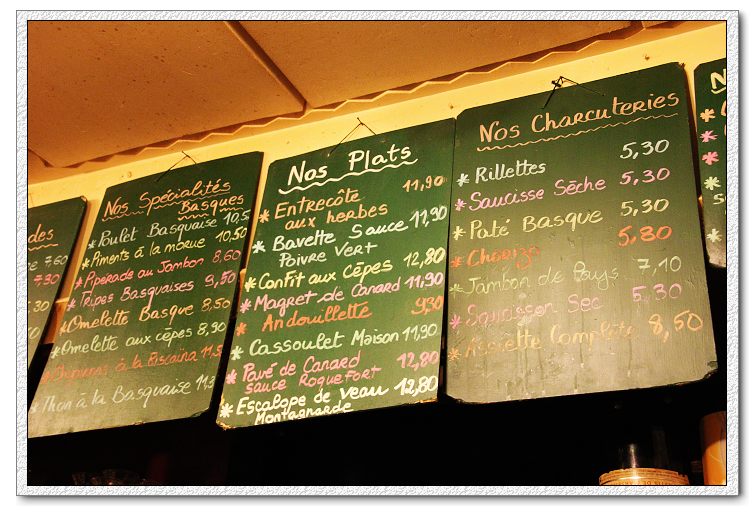 des
7.60
7.30
30
Nos Spécialités
Basques
* Poulet Basquaise 10,5
* Piments à la morue 10,50
* Piperade au Jambon 8,60
* Tripes Basquaises 9,50
* Omelette Basque 8,50
* Omelette aux cèpes 8,90
à la Biscaina 11,5
* Thon à la Basquaise 11,3
Nos Plats
* Entrecôte 11,90
aux herbes
* Bavette Sauce 11,90
Poivre Vert
* Confit aux Cèpes 12,80
* Magret de Canard 11,90
* Andouillette 9,90
* Cassoulet Maison 11,90
* Pavé de Canard 12,80
sauce Roquefort
* Escalope de veau 12,80
Montagnarde
Nos Charcuteries
* Rillettes 5,30
* Saucisse Sèche 5,30
* Paté Basque 5,30
* Chorizo 5,30
* Jambon de Pays 7,10
* Saucisson Sec 5,30
* Assiette Complète 8,50